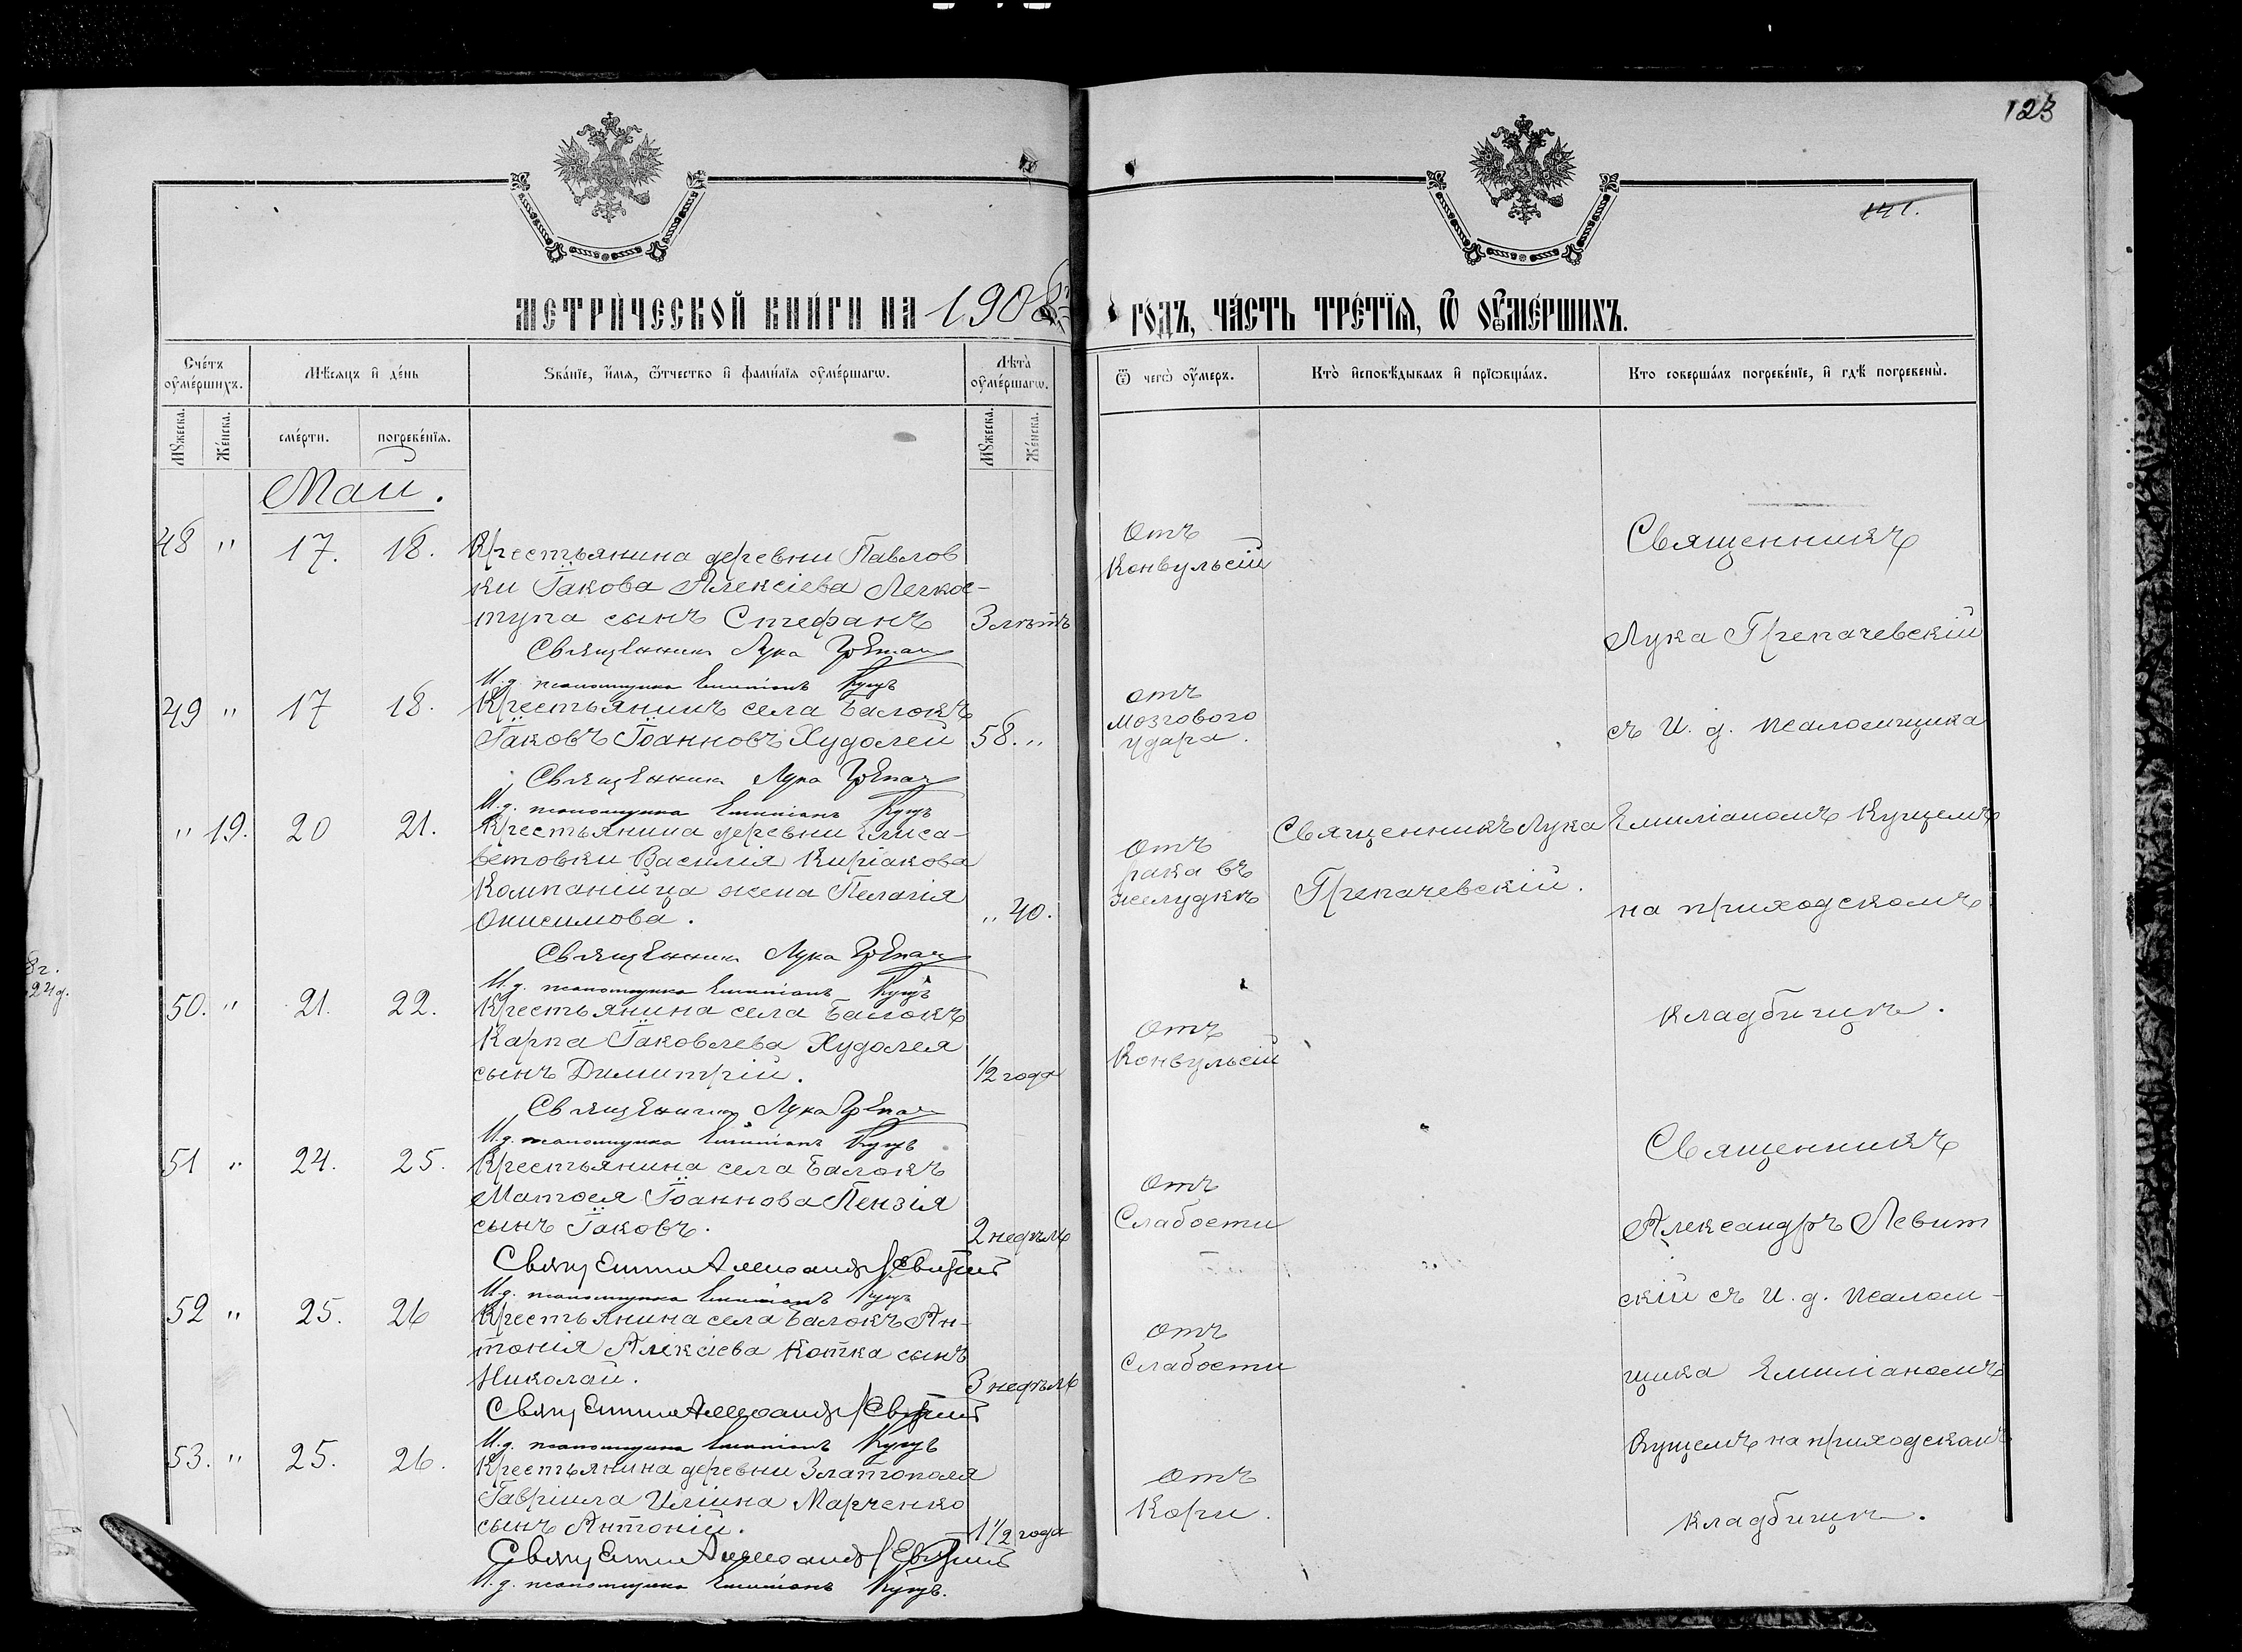 123
141.
МЕТРИЧЕСКОЙ КНИГИ НА 1908 ГОДЪ, ЧАСТЬ ТРЕТІЯ, Ѿ ОУМЕРШИХЪ.
Счетъ оумершихъ.
Мѣсяцъ и день
Званіе, имя, ѿтчество и фамилія оумершагѡ.
Лѣта оумершагѡ.
Ѿ чегѡ оумеръ.
Кто исповѣдывалъ и пріѡбщалъ.
Кто совершалъ погребеніе, и гдѣ погребены.
Мужеска.
Женска.
смерти.
погребенія.
Мужеска.
Женска.
Маій.
48 " 17. 18. Крестьянина деревни Павлов
ки Іакова Алексіева Легкос-
тупа сынъ Стефанъ 3 лѣтъ
Отъ
Конвульсій
Священникъ Лука Грепач
И.д. псаломщика Емиліанъ Кущъ
49 " 17 18. Крестьянинъ села Балокъ
Іаковъ Іоанновъ Худолей 58. "
отъ
мозгового
удара.
Священникъ Лука Грепач
И.д. псаломщика Емиліанъ Кущъ
" 19. 20 21. Крестьянина деревни Елиса-
ветовки Василія Киріакова
Компанійца жена Пелагія
Онисимова. " 40.
Отъ
рака въ
желудкѣ
Священникъ Лука
Грепачевскій.
Священникъ Лука Грепач
И.д. псаломщика Емиліанъ Кущъ
50. " 21. 22. Крестьянина села Балокъ
Карпа Іаковлева Худолея
сынъ Димитрій. 1/2 года
Отъ
Конвульсій
Священникъ Лука Грепач
И.д. псаломщика Емиліанъ Кущъ
Священникъ
Лука Грепачевскій
съ И. д. псаломщика
Емиліаномъ Кущемъ
на приходскомъ
кладбищѣ.
51 " 24. 25. Крестьянина села Балокъ
Матѳея Іоаннова Пензія
сынъ Іаковъ. 2 недѣль
Отъ
Слабости
Священникъ Александръ Левитскій
И.д. псаломщика Емиліанъ Кущъ
52 " 25. 26 Крестьянина села Балокъ Ан-
тонія Алексіева Котка сынъ
Николай. 3 недѣль
Отъ
Слабости
Священникъ Александръ Левитскій
И.д. псаломщика Емиліанъ Кущъ
53. " 25. 26. Крестьянина деревни Златополя
Гавріила Иліина Марченко
сынъ Антоній. 1 1/2 года
Отъ
Кори.
Священникъ Александръ Левитскій
И.д. псаломщика Емиліанъ Кущъ.
Священникъ
Александръ Левит
скій съ И. д. псалом-
щика Емиліаномъ
Кущемъ на приходскомъ
кладбищѣ.
8г.
24д.